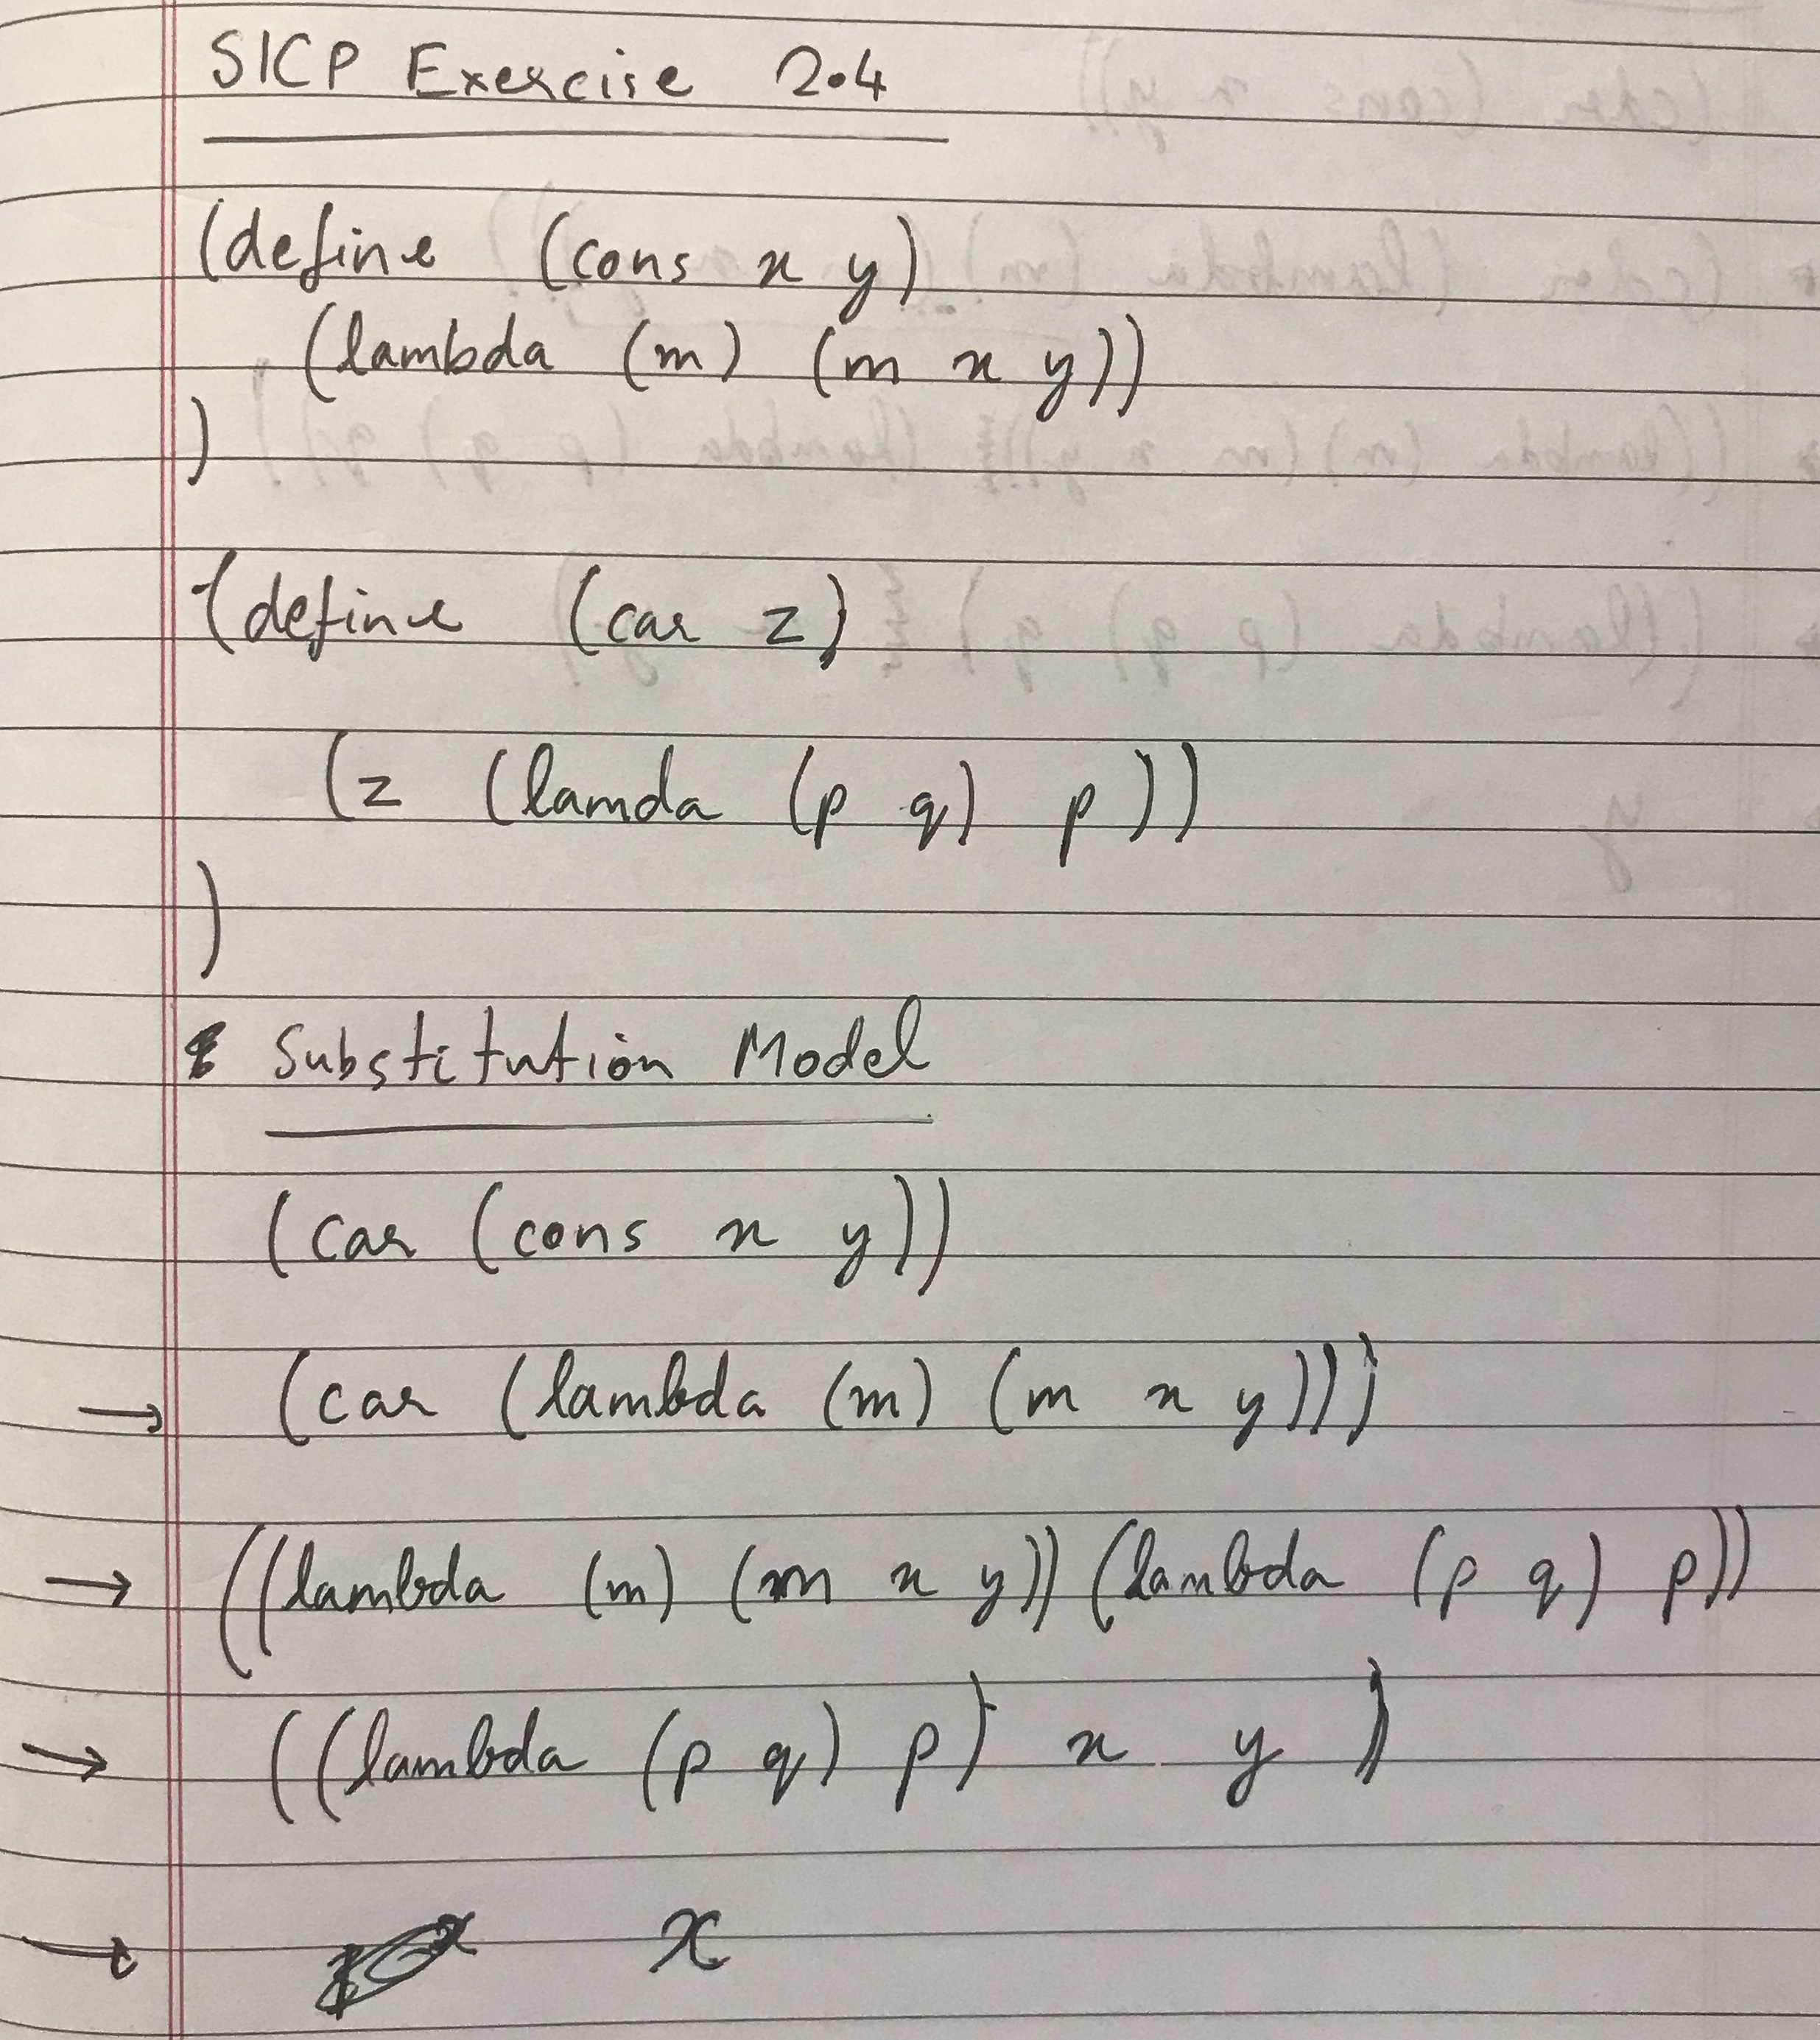 SICP Exercise 2.4
(define (cons x y)
(lambda (m) (m x y))
)
(define (car z)
(z (lamda (p q) p))
)
Substitution Model
(car (cons x y))
→ (car (lambda (m) (m x y)))
→ ((lambda (m) (m x y)) (lambda (p q) p))
→ ((lambda (p q) p) x y)
→ x